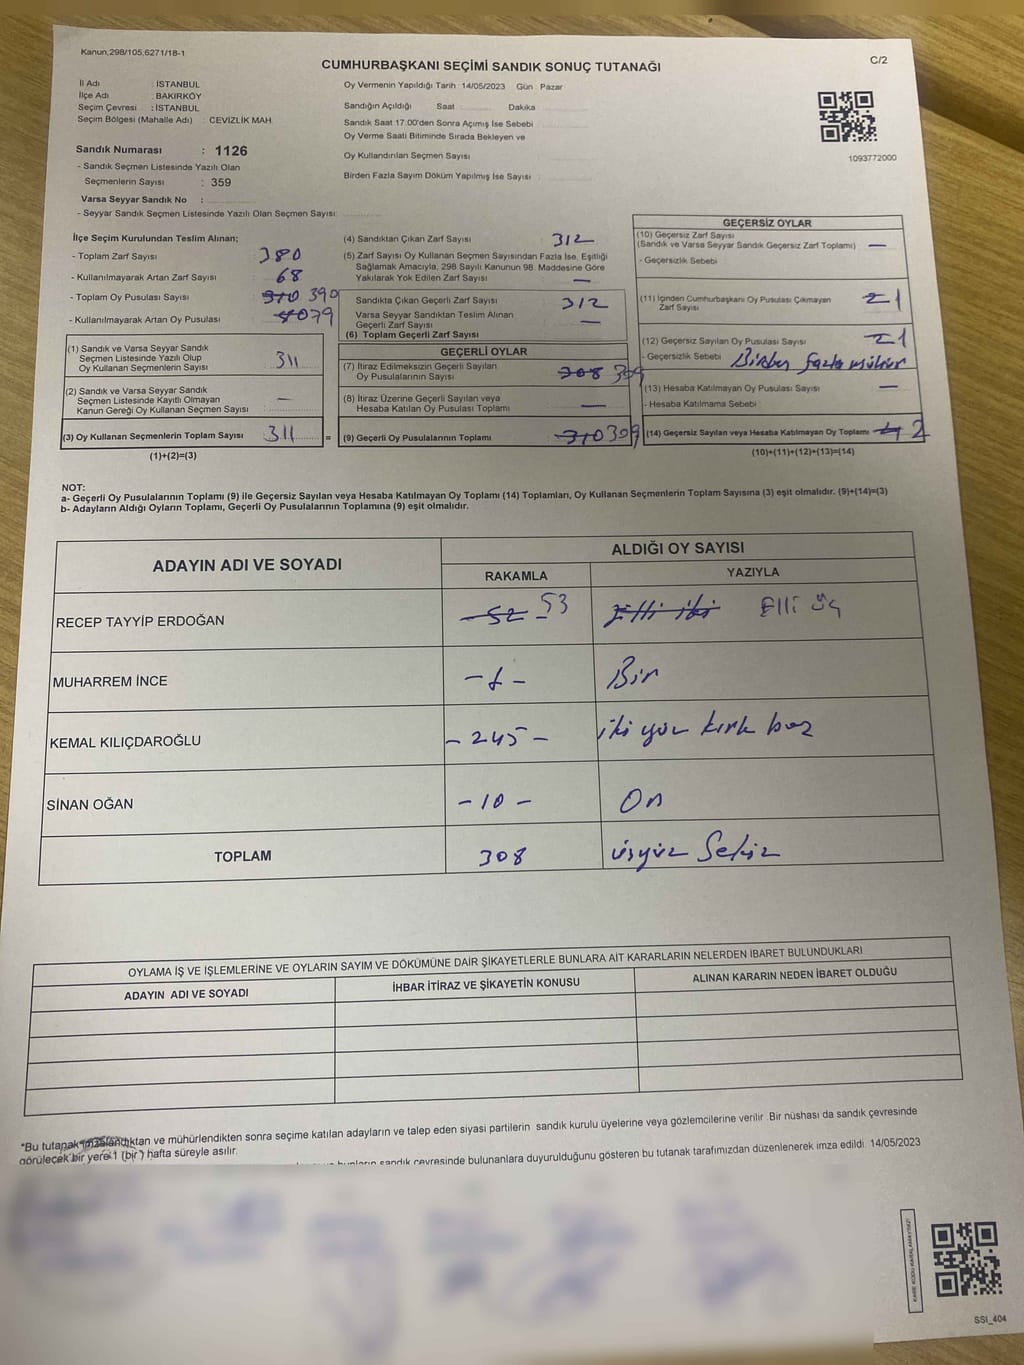 Kanun,298/105,6271/18-1
CUMHURBAŞKANI SEÇİMİ SANDIK SONUÇ TUTANAĞI
C/2
İl Adı : İSTANBUL
İlçe Adı : BAKIRKÖY
Seçim Çevresi : İSTANBUL
Seçim Bölgesi (Mahalle Adı) : CEVİZLİK MAH.
Sandık Numarası : 1126
- Sandık Seçmen Listesinde Yazılı Olan
Seçmenlerin Sayısı : 359
Varsa Seyyar Sandık No :
- Seyyar Sandık Seçmen Listesinde Yazılı Olan Seçmen Sayısı:
Oy Vermenin Yapıldığı Tarih 14/05/2023 Gün : Pazar
Sandığın Açıldığı Saat Dakika
Sandık Saat 17.00'den Sonra Açımış İse Sebebi
Oy Verme Saati Bitiminde Sırada Bekleyen ve
Oy Kullandırılan Seçmen Sayısı
Birden Fazla Sayım Döküm Yapılmış İse Sayısı :
1093772000
İlçe Seçim Kurulundan Teslim Alınan;
- Toplam Zarf Sayısı : 380
- Kullanılmayarak Artan Zarf Sayısı : 68
- Toplam Oy Pusulası Sayısı : 310 390
- Kullanılmayarak Artan Oy Pusulası : 79
(1) Sandık ve Varsa Seyyar Sandık
Seçmen Listesinde Yazılı Olup
Oy Kullanan Seçmenlerin Sayısı 311
(2) Sandık ve Varsa Seyyar Sandık
Seçmen Listesinde Kayıtlı Olmayan
Kanun Gereği Oy Kullanan Seçmen Sayısı : —
(3) Oy Kullanan Seçmenlerin Toplam Sayısı 311 =
(1)+(2)=(3)
(4) Sandıktan Çıkan Zarf Sayısı 312
(5) Zarf Sayısı Oy Kullanan Seçmen Sayısından Fazla İse, Eşitliği
Sağlamak Amacıyla, 298 Sayılı Kanunun 98. Maddesine Göre
Yakılarak Yok Edilen Zarf Sayısı —
Sandıkta Çıkan Geçerli Zarf Sayısı 312
Varsa Seyyar Sandıktan Teslim Alınan
Geçerli Zarf Sayısı —
(6) Toplam Geçerli Zarf Sayısı
GEÇERLİ OYLAR
(7) İtiraz Edilmeksizin Geçerli Sayılan
Oy Pusulalarının Sayısı 308 309
(8) İtiraz Üzerine Geçerli Sayılan veya
Hesaba Katılan Oy Pusulası Toplamı —
(9) Geçerli Oy Pusulalarının Toplamı 310 309
GEÇERSİZ OYLAR
(10) Geçersiz Zarf Sayısı
(Sandık ve Varsa Seyyar Sandık Geçersiz Zarf Toplamı) —
- Geçersizlik Sebebi
(11) İçinden Cumhurbaşkanı Oy Pusulası Çıkmayan
Zarf Sayısı 1
(12) Geçersiz Sayılan Oy Pusulası Sayısı 1
- Geçersizlik Sebebi Birden fazla mühür
(13) Hesaba Katılmayan Oy Pusulası Sayısı —
- Hesaba Katılmama Sebebi
(14) Geçersiz Sayılan veya Hesaba Katılmayan Oy Toplamı 2
(10)+(11)+(12)+(13)=(14)
NOT:
a- Geçerli Oy Pusulalarının Toplamı (9) ile Geçersiz Sayılan veya Hesaba Katılmayan Oy Toplamı (14) Toplamları, Oy Kullanan Seçmenlerin Toplam Sayısına (3) eşit olmalıdır. (9)+(14)=(3)
b- Adayların Aldığı Oyların Toplamı, Geçerli Oy Pusulalarının Toplamına (9) eşit olmalıdır.
ADAYIN ADI VE SOYADI
ALDIĞI OY SAYISI
RAKAMLA YAZIYLA
RECEP TAYYİP ERDOĞAN 52 53 Elli iki Elli üç
MUHARREM İNCE -1- Bir
KEMAL KILIÇDAROĞLU -245- iki yüz kırk beş
SİNAN OĞAN -10- On
TOPLAM 308 üçyüz Sekiz
OYLAMA İŞ VE İŞLEMLERİNE VE OYLARIN SAYIM VE DÖKÜMÜNE DAİR ŞİKAYETLERLE BUNLARA AİT KARARLARIN NELERDEN İBARET BULUNDUKLARI
ADAYIN ADI VE SOYADI İHBAR İTİRAZ VE ŞİKAYETİN KONUSU ALINAN KARARIN NEDEN İBARET OLDUĞU
*Bu tutanak imzalandıktan ve mühürlendikten sonra seçime katılan adayların ve talep eden siyasi partilerin sandık kurulu üyelerine veya gözlemcilerine verilir. Bir nüshası da sandık çevresinde
görülecek bir yere 1 (bir) hafta süreyle asılır.
sandık çevresinde bulunanlara duyurulduğunu gösteren bu tutanak tarafımızdan düzenlenerek imza edildi. 14/05/2023
KARE KODU KARALAMAYINIZ!
SSI_404